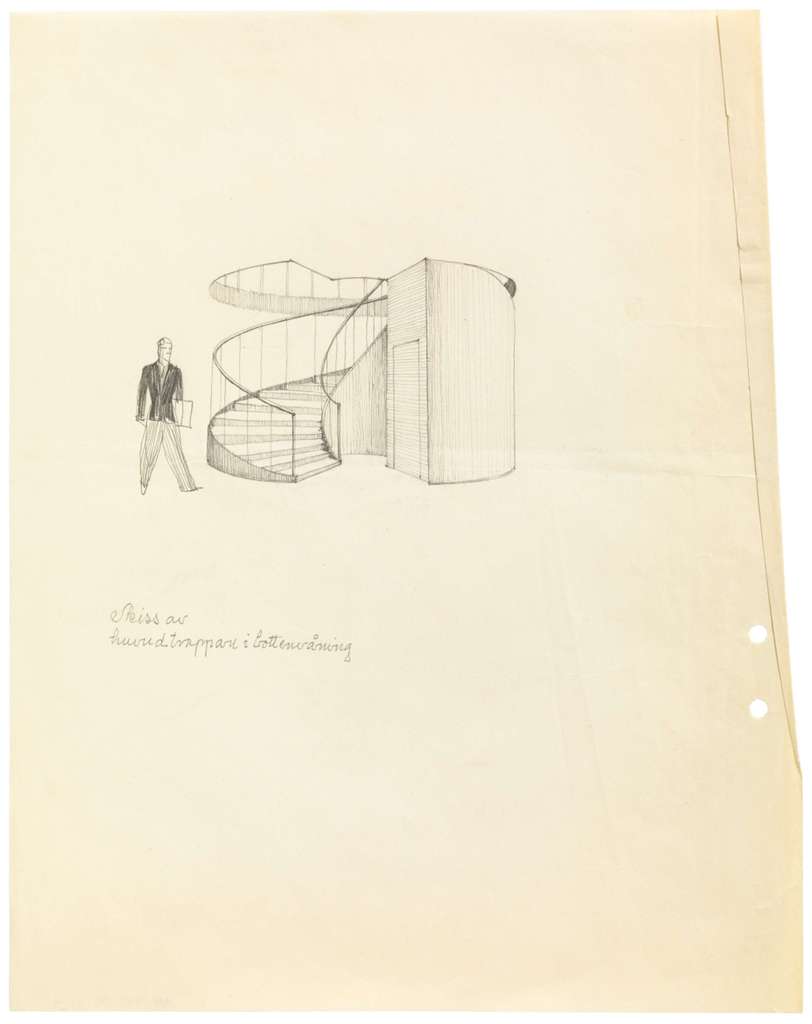 Skiss av
huvudtrappan i bottenvåning